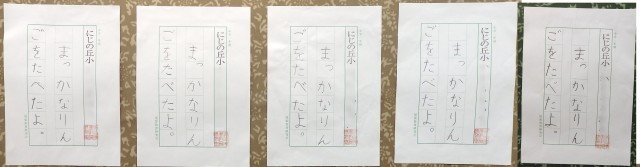 にじの丘小
まっかなりん
ごをたべたよ。
にじの丘小
まっかなりん
ごをたべたよ。
にじの丘小
まっかなりん
ごをたべたよ。
にじの丘小
まっかなりん
ごをたべたよ。
にじの丘小
まっかなりん
ごをたべたよ。